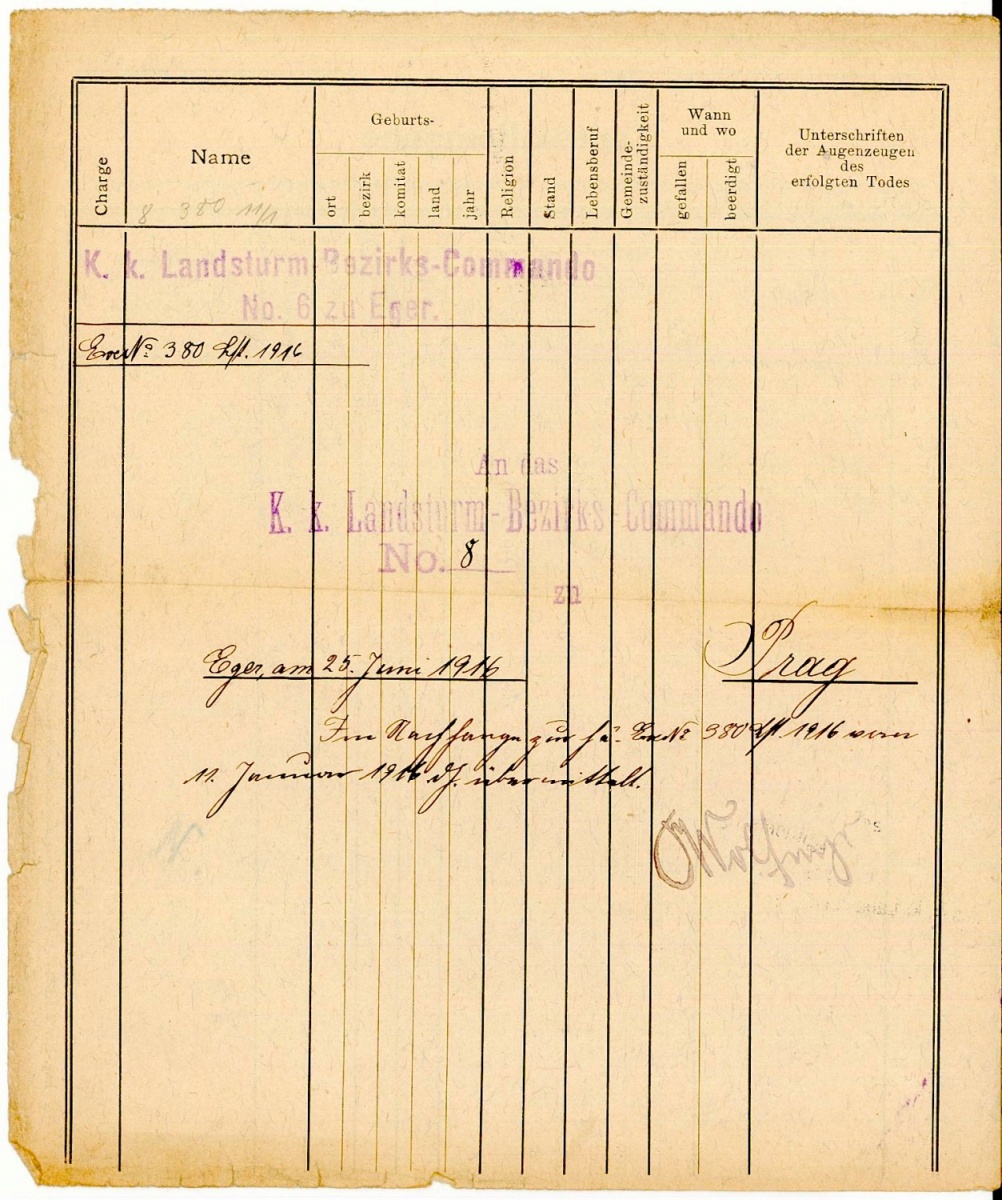 Charge
Name
Geburts-
ort
bezirk
komitat
land
jahr
Religion
Stand
Lebensberuf
Gemeinde-
zuständigkeit
Wann
und wo
gefallen
beerdigt
Unterschriften
der Augenzeugen
des
erfolgten Todes
8 380 11/1
K. k. Landsturm-Bezirks-Commando
No. 6 zu Eger.
No 380 Lst. 1916
An das
K. k. Landsturm-Bezirks-Commando
No. 8
zu
Prag
Eger, am 25. Juni 1916
Im Nachhange zur No 380 Lst. 1916 vom
11. Januar 1916 übermittelt.